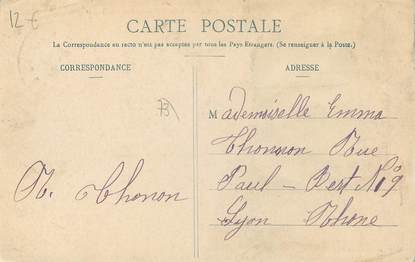 12 €
CARTE POSTALE
La Correspondance au recto n'est pas acceptée par tous les Pays Étrangers. (Se renseigner à la Poste.)
CORRESPONDANCE
ADRESSE
73
Mademoiselle Emma
Thonnon Rue
Paul - Bert No 9
Lyon Rhone
N. Thonon